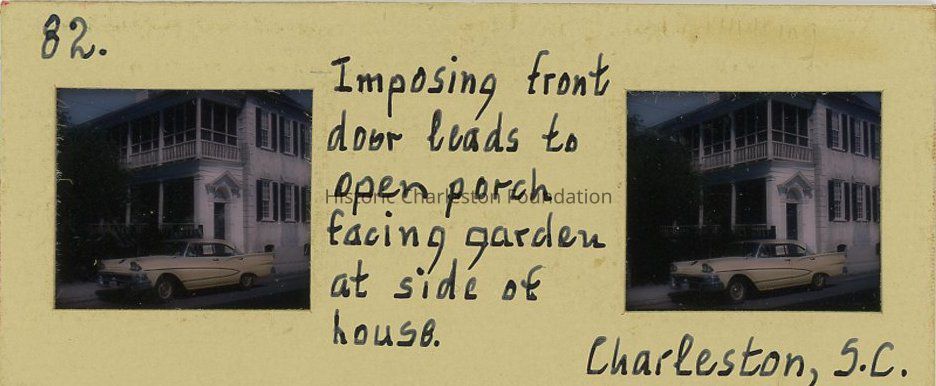 82.
Imposing front
door leads to
open porch
Historic Charleston Foundation
facing garden
at side of
house.
Charleston, S.C.